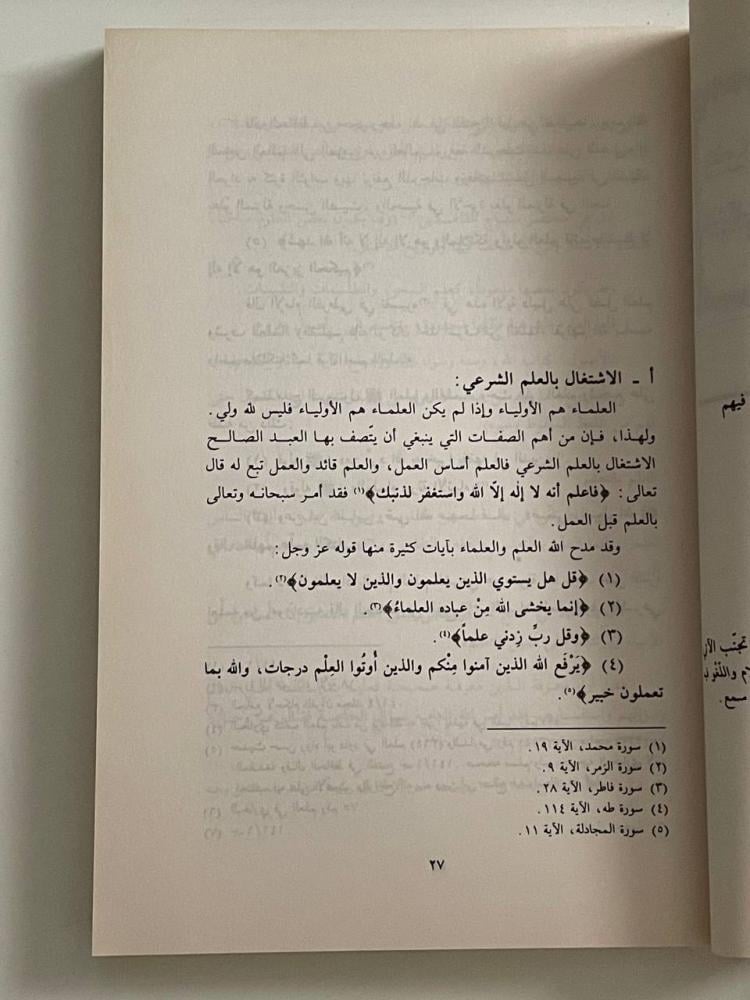 أ ـ الاشتغال بالعلم الشرعي :
العلماء هم الأولياء وإذا لم يكن العلماء هم الأولياء فليس لله ولي .
ولهذا، فإن من أهم الصفات التي ينبغي أن يتّصف بها العبد الصالح
الاشتغال بالعلم الشرعي فالعلم أساس العمل، والعلم قائد والعمل تبع له قال
تعالى : ﴿فاعلم أنه لا إله إلاّ الله واستغفر لذنبك﴾(١) فقد أمر سبحانه وتعالى
بالعلم قبل العمل .
وقد مدح الله العلم والعلماء بآيات كثيرة منها قوله عز وجل :
(١) ﴿قل هل يستوي الذين يعلمون والذين لا يعلمون﴾(٢) .
(٢) ﴿إنما يخشى الله مِنْ عباده العلماءُ﴾(٣) .
(٣) ﴿وقل ربِّ زِدني علماً﴾(٤) .
(٤) ﴿يَرْفَع الله الذين آمنوا مِنْكم والذين أُوتُوا العِلْم درجات، والله بما
تعملون خبير﴾(٥) .
(١) سورة محمد، الآية ١٩ .
(٢) سورة الزمر، الآية ٩ .
(٣) سورة فاطر، الآية ٢٨ .
(٤) سورة طه، الآية ١١٤ .
(٥) سورة المجادلة، الآية ١١ .
٢٧
فيهم
تجنّب
سمع .